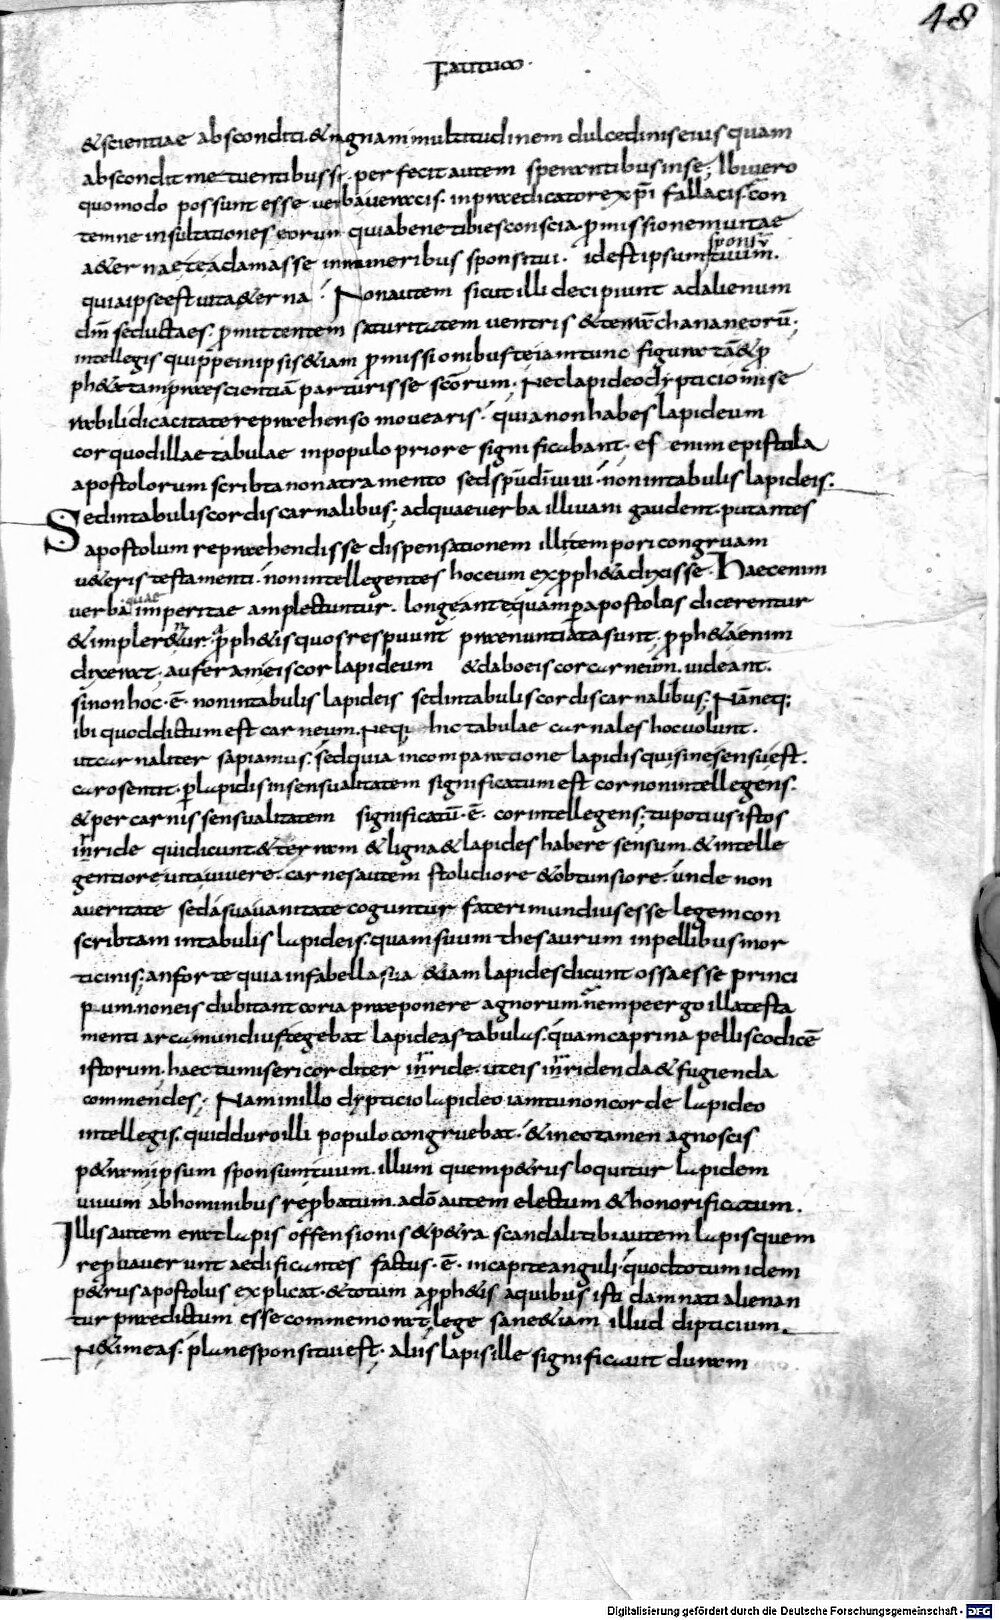 48
Faustum.
&scientiae absconditi. & magnam multitudinem dulcedinis eius quam
abscondit metuentibus se. perfecit autem sperantibus in se; Ibi vero
quomodo possunt esse verba veracis. in praedicatore xpi fallacis. con
temne insultationes eorum quia bene tibi es conscia. promissionem vitae
a&ernae te adamasse in muneribus sponsi tui. id est ipsum sponsū tuum.
quia ipse est vita &erna. Non autem sicut illi decipiunt ad alienum
dm̄ seducta es. promittentem saturitatem ventris & terrā chananeorū;
intellegis quippe in ipsis &iam promissionibus te iam tunc figuratā & p
ph&atam praescientiā parturisse scōrum. Nec lapideo dypticio mise
rabili dicacitate reprehenso movearis. quia non habes lapideum
cor quod illae tabulae in populo priore significabant. es enim epistula
apostolorum scribta non atramento sed spū dī vivi. non in tabulis lapideis.
Sed in tabulis cordis carnalibus. ad quae verba illi vani gaudent. putantes
apostolum reprehendisse dispensationem illi tempori congruam
v&eris testamenti. non intellegentes hoc eum ex proph&a dixisse. Haec enim
verba quae imperitae amplectuntur. longe antequam per apostolos dicerentur
& implerentur. a proph&is quos respuunt praenuntiata sunt. proph&a enim
dixerat. auferam eis cor lapideum & dabo eis cor carneum. videant.
si non hoc .ē. non in tabulis lapideis sed in tabulis cordis carnalibus; Nā neq;
ibi quod dictum est carneum. Neq; hic tabulae carnales hoc volunt.
ut carnaliter sapiamus. sed quia in comparatione lapidis qui sine sensu est.
caro sentit. per lapidis insensualitatem significatum est cor non intellegens.
& per carnis sensualitatem significatū .ē. cor intellegens; tu potius istos
inride qui dicunt & terram & ligna & lapides habere sensum. & intelle
gentiore vita vivere. carnes autem stolidiore & obtunsiore. unde non
a veritate sed a sua vanitate coguntur fateri mundius esse legem con
scribtam in tabulis lapideis. quam suum thesaurum in pellibus mor
ticinis. an forte quia in fabella sua &iam lapides dicunt ossa esse princi
pum. non eis dubitant coria praeponere agnorum. nempe ergo illa testa
menti arca mundius tegebat lapideas tabulas. quam caprina pellis codicē
istorum. haec tu misericorditer inride. ut eis inridenda & fugienda
commendes; Nam in illo dypticio lapideo iam tu non corde lapideo
intellegis. quid duro illi populo congruebat. & in eo tamen agnoscis
p&ram ipsum sponsum tuum. illum quem p&rus loquitur lapidem
vivum ab hominibus reprobatum. a dō autem electum & honorificatum.
Illis autem erat lapis offensionis & p&ra scandali tibi autem lapis quem
reprobaverunt aedificantes factus .ē. in caput anguli. quod totum idem
p&rus apostolus explicat. & totum a proph&is a quibus isti damnati alienan
tur praedictum esse commemorat. lege sane &iam illud dipticium.
N& timeas. plane sponsi tui est. aliis lapis ille significavit duram
Digitalisierung gefördert durch die Deutsche Forschungsgemeinschaft - DFG